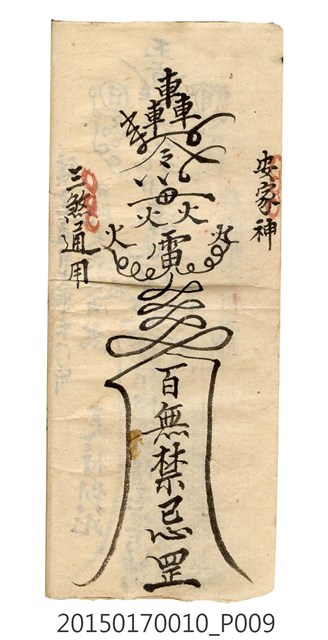 安家神
轟
令
火 火
火 雷 火
百無禁忌罡
三煞通用
20150170010_P009